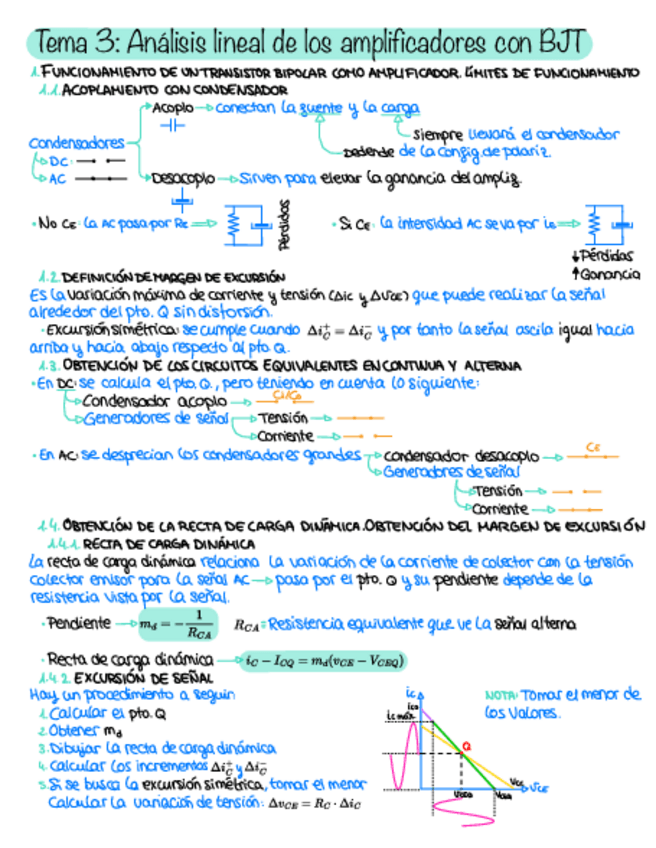 Tema 3: Análisis lineal de los amplificadores con BJT
1. FUNCIONAMIENTO DE UN TRANSISTOR BIPOLAR COMO AMPLIFICADOR. LÍMITES DE FUNCIONAMIENTO
1.1. ACOPLAMIENTO CON CONDENSADOR
Acoplo → conectan la fuente y la carga
siempre llevará el condensador
Depende de la config. de polariz.
Condensadores
DC:
AC
Desacoplo → Sirven para elevar la ganancia del amplif.
· No CE: la AC pasa por RE ⇒
Pérdidas
· Si CE: la intensidad AC se va por
↓ Pérdidas
↑ Ganancia
1.2. DEFINICIÓN DE MARGEN DE EXCURSIÓN
Es la variación máxima de corriente y tensión (Δic y ΔVCE) que puede realizar la señal
alrededor del pto. Q sin distorsión.
· Excursión simétrica: se cumple cuando Δi_C^+ = Δi_C^- y por tanto la señal oscila igual hacia
arriba y hacia abajo respecto al pto Q.
1.3. OBTENCIÓN DE LOS CIRCUITOS EQUIVALENTES EN CONTINUA Y ALTERNA
· En DC: se calcula el pto. Q, pero teniendo en cuenta lo siguiente:
Condensador acoplo →
Generadores de señal → Tensión →
Corriente →
· En AC: se desprecian los condensadores grandes → condensador desacoplo → CE
Generadores de señal
Tensión →
Corriente →
1.4. OBTENCIÓN DE LA RECTA DE CARGA DINÁMICA. OBTENCIÓN DEL MARGEN DE EXCURSIÓN
1.4.1. RECTA DE CARGA DINÁMICA
La recta de carga dinámica relaciona la variación de la corriente de colector con la tensión
colector emisor para la señal AC → pasa por el pto. Q y su pendiente depende de la
resistencia vista por la señal.
· Pendiente → m_d = - 1/R_CA   R_CA: Resistencia equivalente que ve la señal alterna
· Recta de carga dinámica → i_C - I_CQ = m_d(v_CE - V_CEQ)
1.4.2. EXCURSIÓN DE SEÑAL
Hay un procedimiento a seguir
1. Calcular el pto. Q
2. Obtener m_d
3. Dibujar la recta de carga dinámica
4. Calcular los incrementos Δi_C^+ y Δi_C^-
5. Si se busca la excursión simétrica, tomar el menor
Calcular la variación de tensión: Δv_CE = R_C · Δi_C
ic
ic máx
Q
VCE
NOTA: Tomar el menor de
los valores.